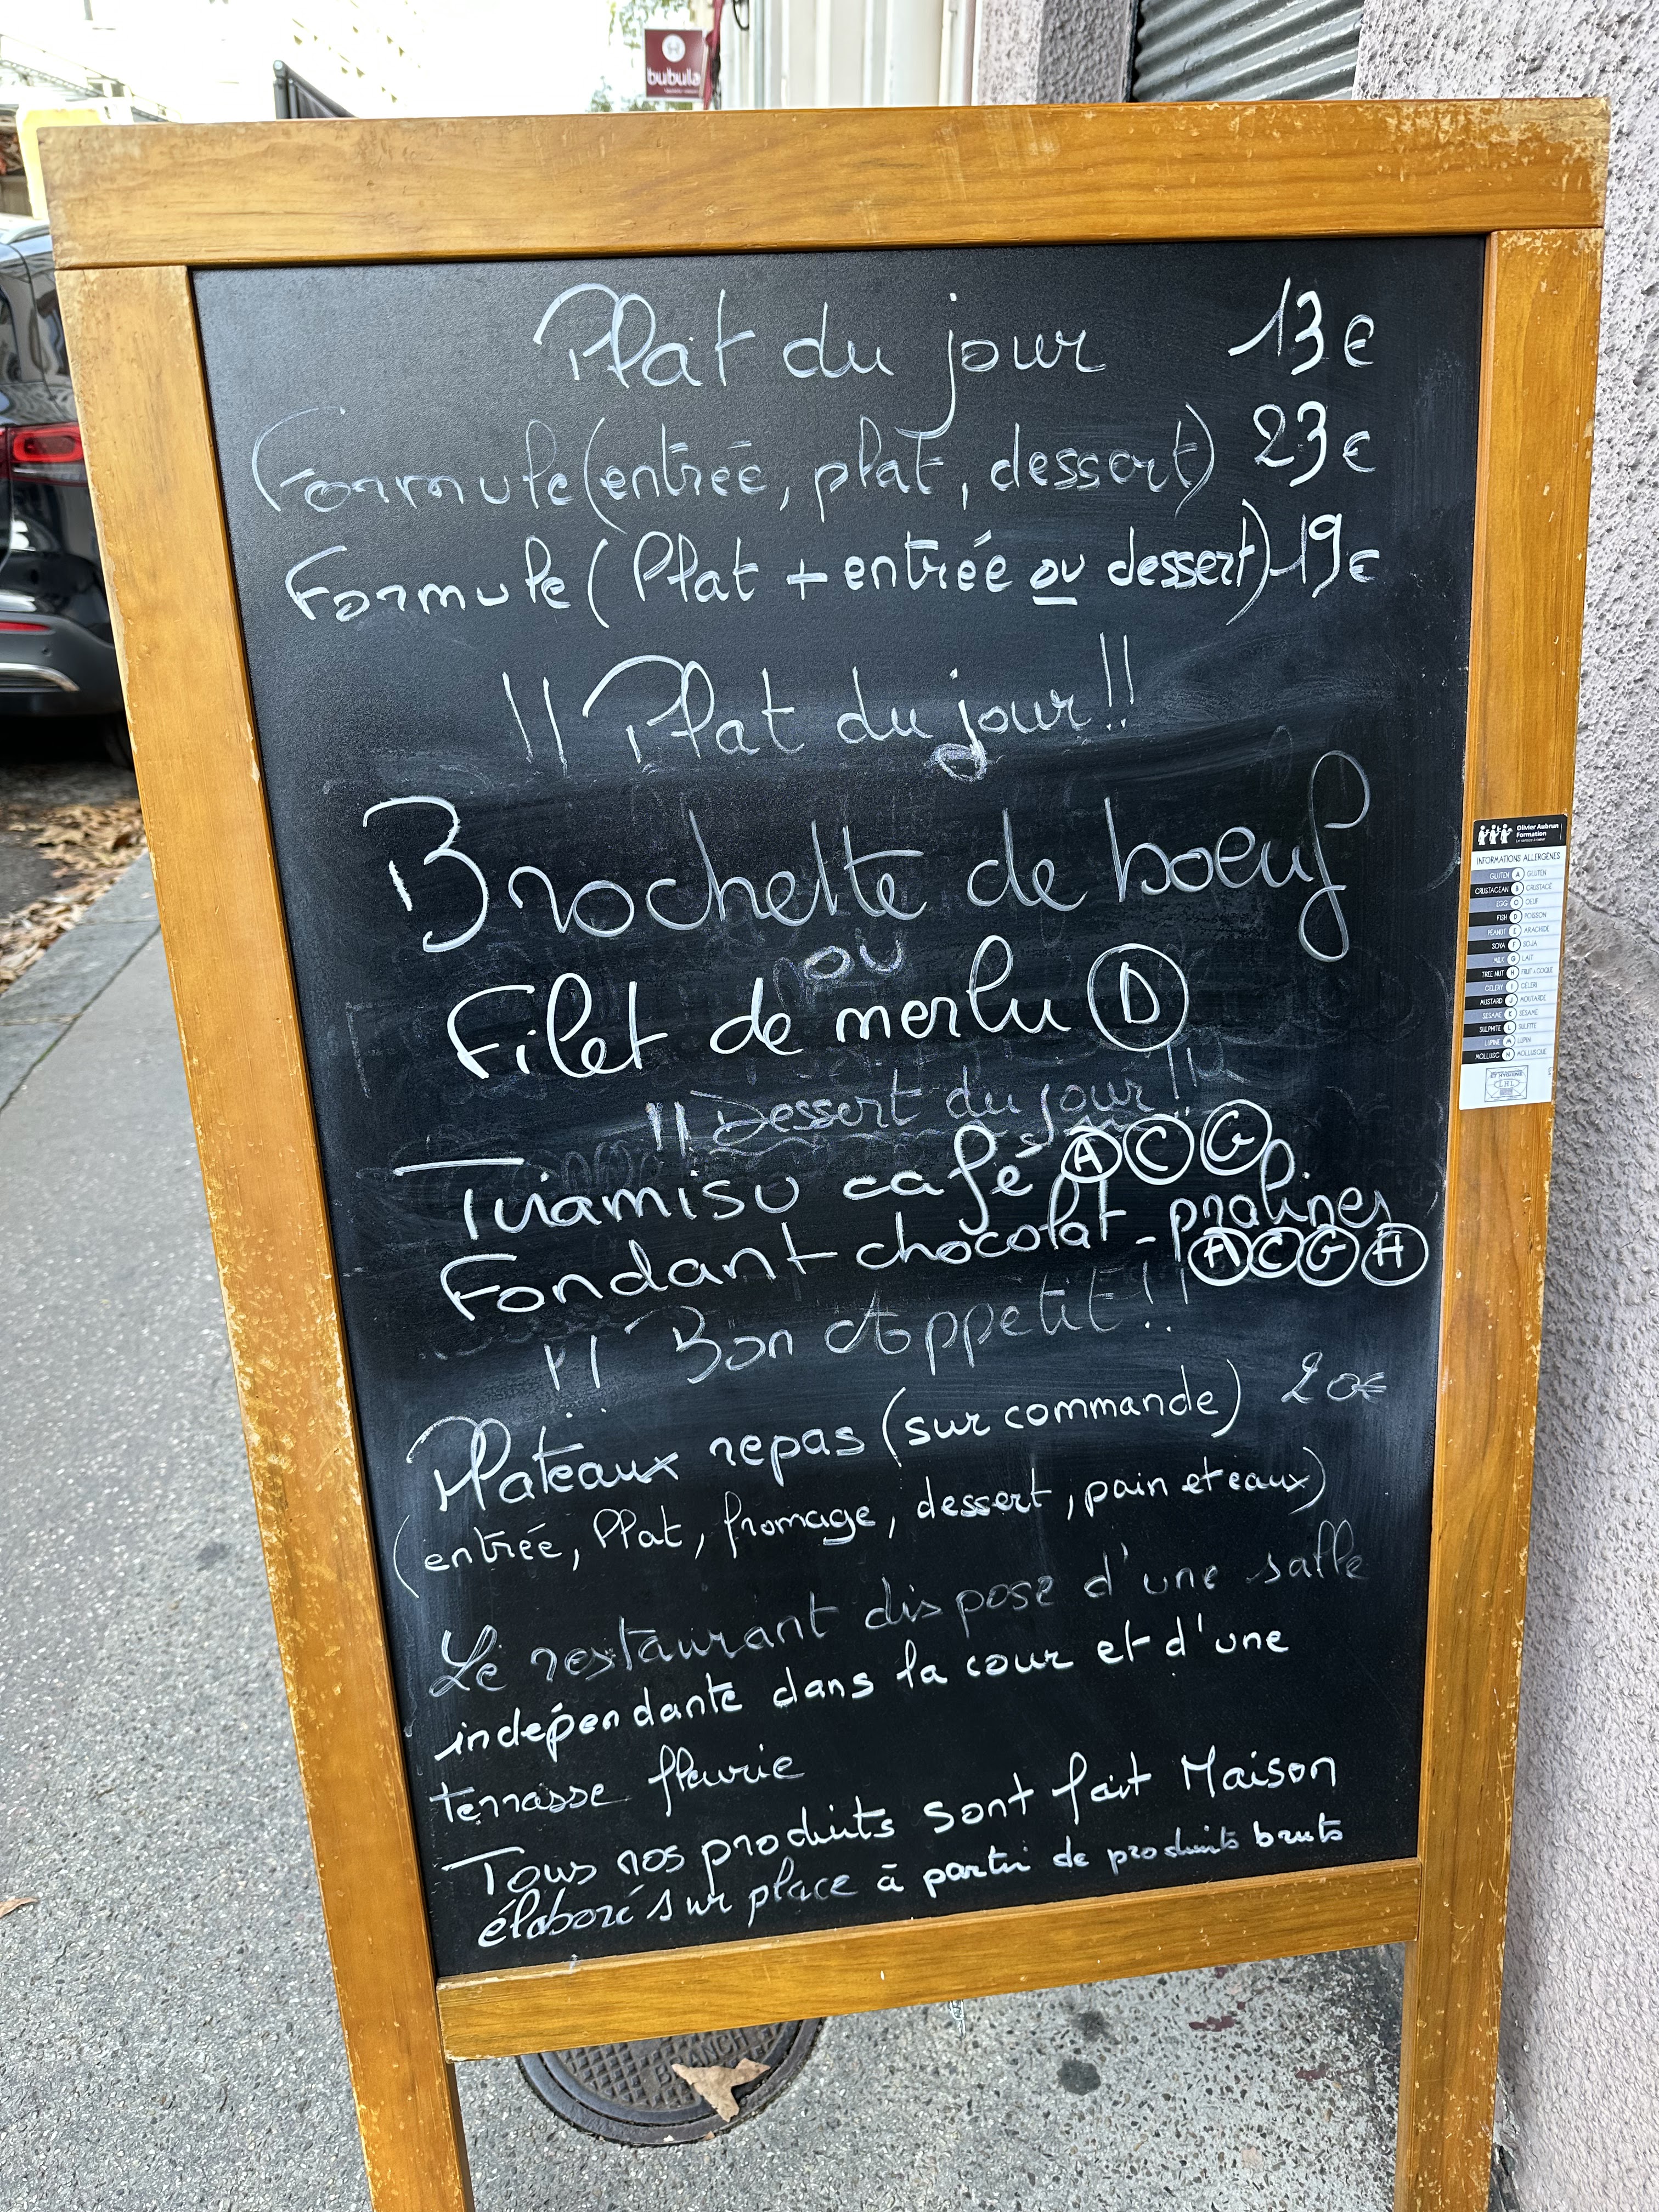 bubulla
Plat du jour 13€
Formule (entrée, plat, dessert) 23€
Formule (Plat + entrée ou dessert) 19€
!! Plat du jour !!
Brochette de boeuf
ou
Filet de merlu D
!! Dessert du jour !!
Tiramisu café A C G
Fondant chocolat - pralines
A C G H
!! Bon Appetit !!
Plateaux repas (sur commande) 20€
(entrée, Plat, fromage, dessert, pain et eaux)
Le restaurant dispose d'une salle
indépendante dans la cour et d'une
terrasse fleurie
Tous nos produits sont fait Maison
élaboré sur place à partir de produits bruts
Olivier Aubrun
Formation
INFORMATIONS ALLERGÈNES
GLUTEN A GLUTEN
CRUSTACEAN B CRUSTACÉ
EGG C OEUF
FISH D POISSON
PEANUT E ARACHIDE
SOYA F SOJA
MILK G LAIT
TREE NUT H FRUIT À COQUE
CELERY I CÉLERI
MUSTARD J MOUTARDE
SESAME K SÉSAME
SULPHITE L SULFITE
LUPINE M LUPIN
MOLLUSC N MOLLUSQUE
ET HYGIENE
L H L